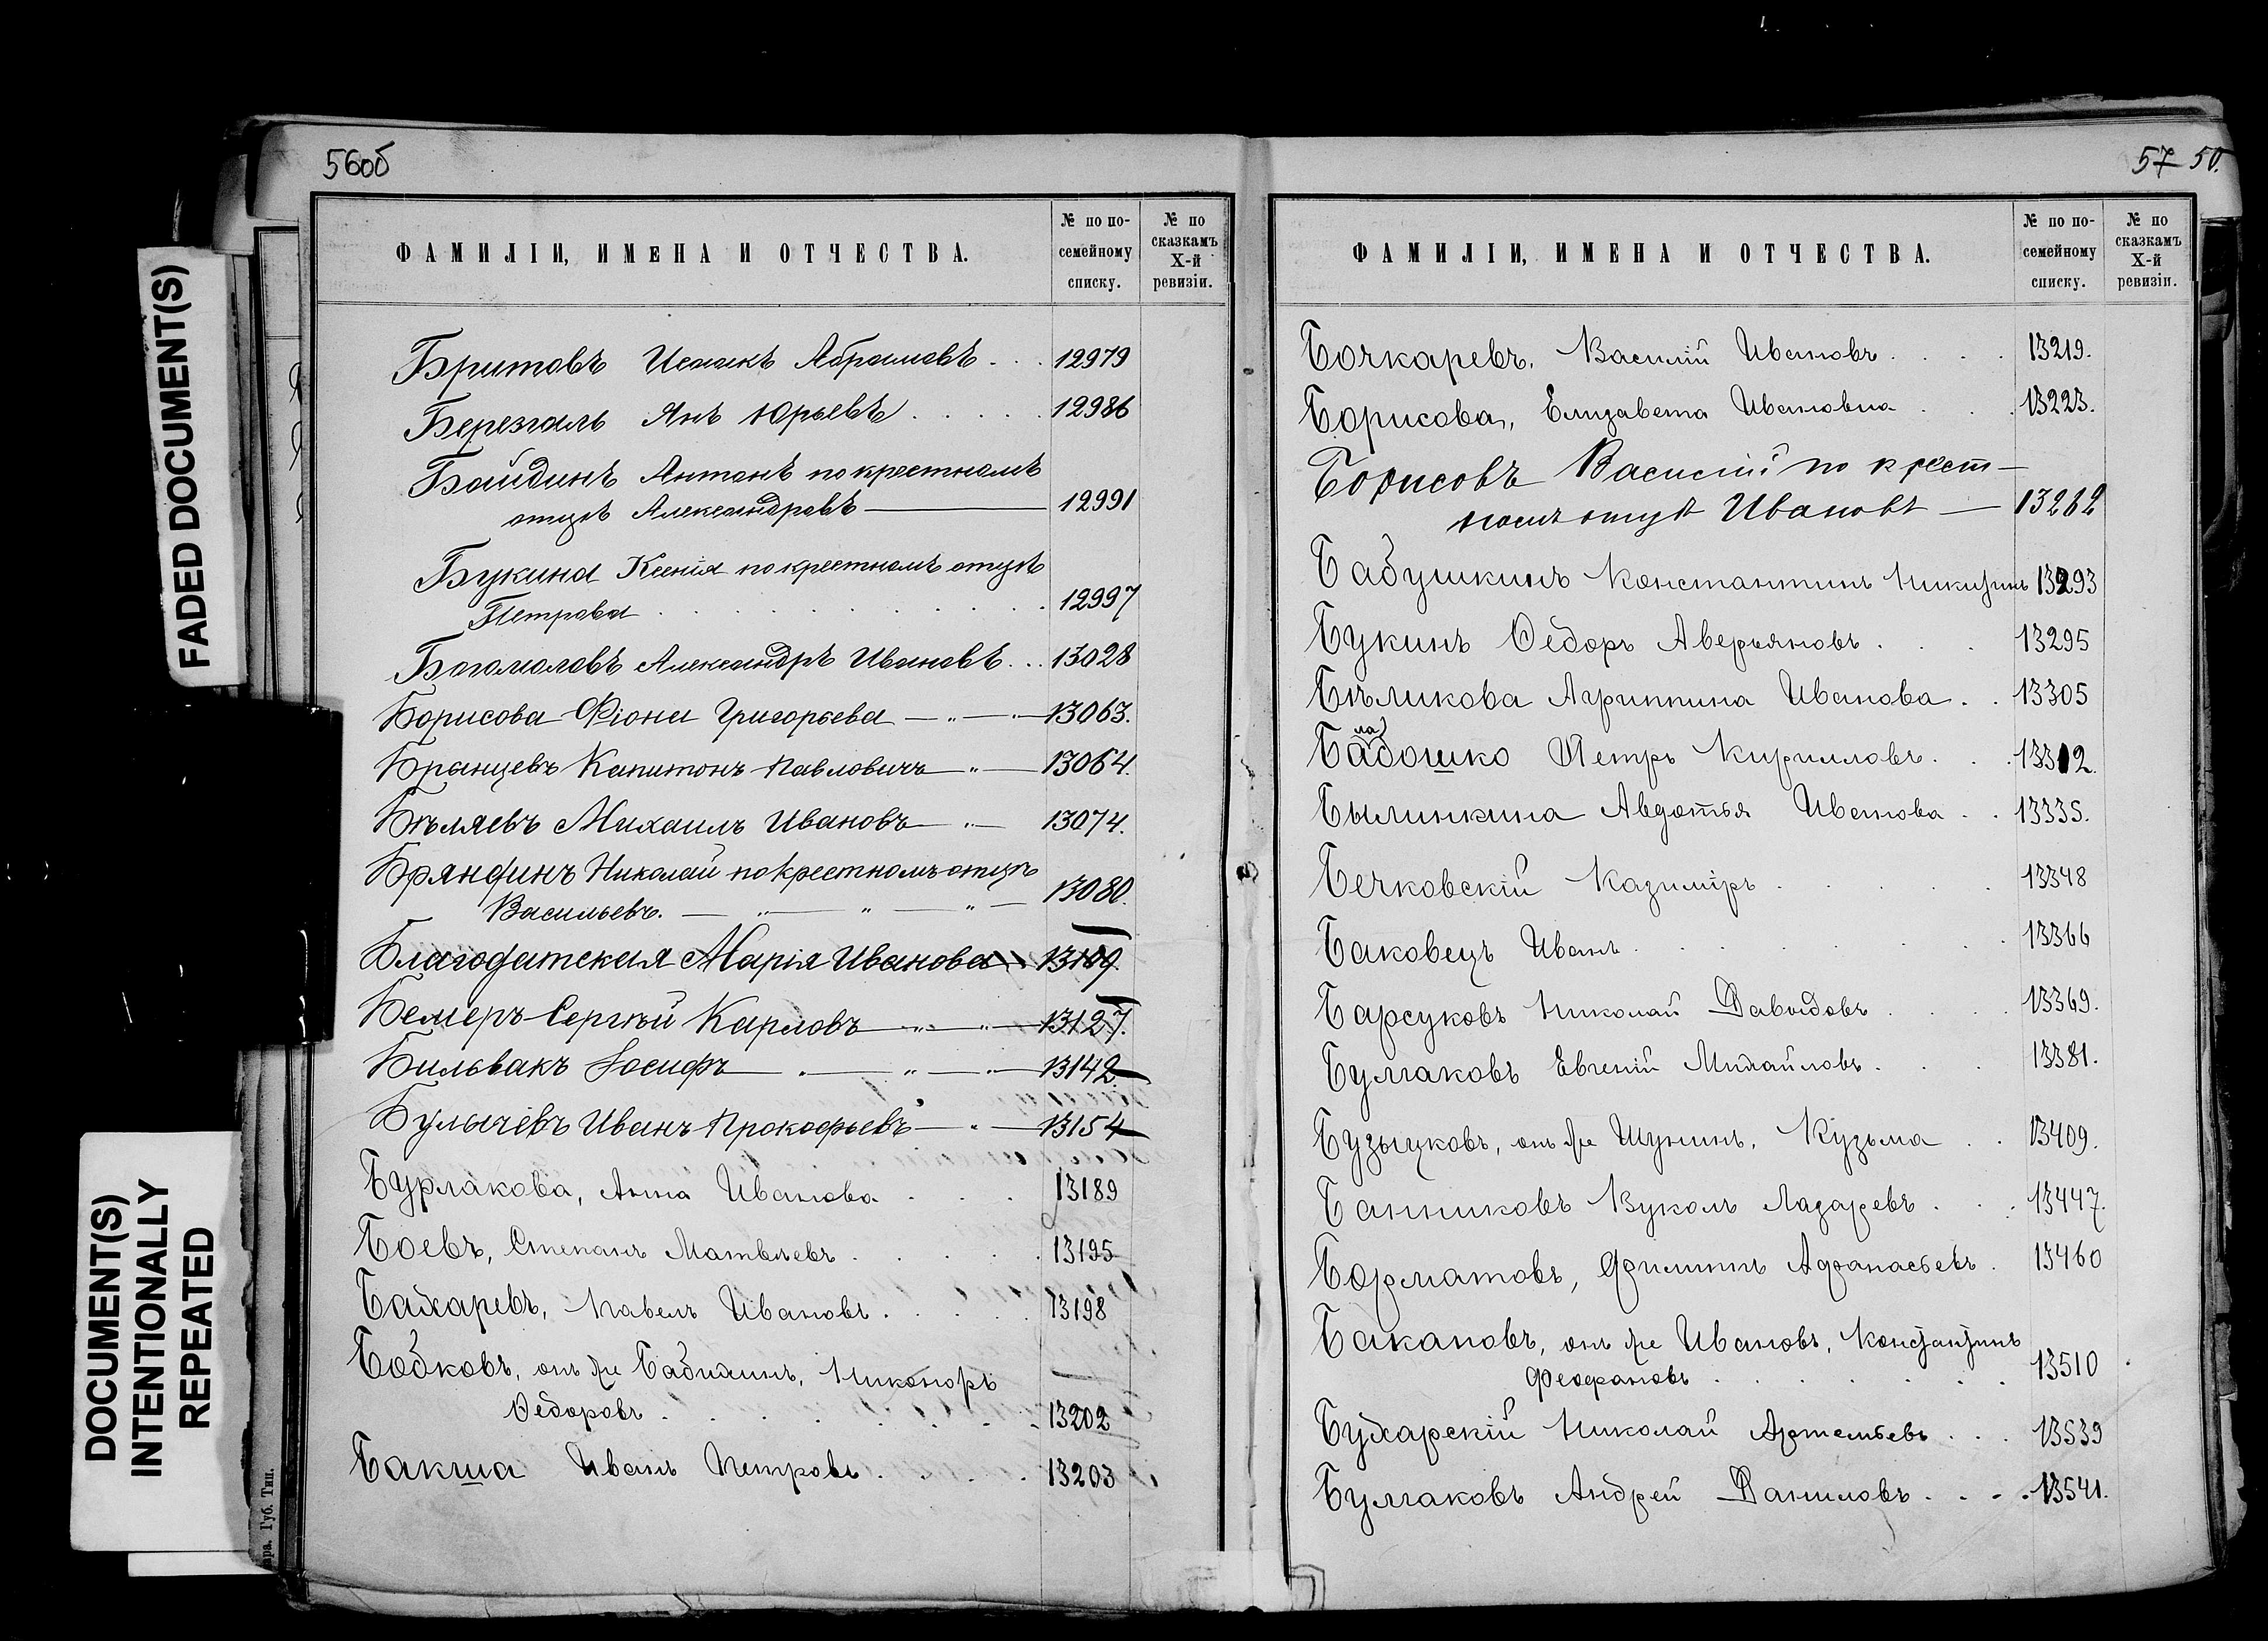 56об
ФАМИЛІИ, ИМЕНА И ОТЧЕСТВА.
№ по по-
семейному
списку.
№ по
сказкамъ
X-й
ревизіи.
Бритовъ Исаакъ Абрамовъ . . . 12979
Березгаль Янъ Юрьевъ . . . . . 12986
Байдинъ Антонъ по крестномъ
отцѣ Александровъ — 12991
Букина Ксенія по крестномъ отцѣ
Петрова . . . . . . 12997
Богомоловъ Александръ Ивановъ . . . 13028
Борисова Фіона Григорьева — " — " — 13063.
Бранцевъ Капитонъ Павловичъ — " — 13064.
Бѣляевъ Михаилъ Ивановъ — " — 13074.
Бряндинъ Николай по крестномъ отцѣ
Васильевъ. — " — " — " — 13080.
Благодатская Марія Иванова 13109.
Бемеръ Сергѣй Карловъ — " — " — 13127.
Бильвакъ Іосифъ — " — " — " — 13142
Булычевъ Иванъ Прокофьевъ — " — 13154
Бурлакова, Анна Иванова . . . 13189
Боевъ, Степанъ Матвѣевъ . . . . . 13195
Бахаревъ, Павелъ Ивановъ . . . . 13198
Бобковъ, онъ же Бабихинъ, Никоноръ
Ѳедоровъ . . . . . . 13202
Бакша Иванъ Петровъ . . . . 13203
57 50.
ФАМИЛІИ, ИМЕНА И ОТЧЕСТВА.
№ по по-
семейному
списку.
№ по
сказкамъ
X-й
ревизіи.
Бочкаревъ, Василій Ивановъ . . . . 13219.
Борисова, Елизавета Ивановна . . . 13223.
Борисовъ Василій по крест-
номъ отцѣ Ивановъ — 13262
Бабушкинъ Константинъ Никитинъ 13293
Букинъ Ѳедоръ Аверьяновъ . . . 13295
Бѣликова Агриппина Иванова . . 13305
ла
Бабошко Петръ Кирилловъ . . . 13312.
Былинкина Авдотья Иванова . . 13335.
Бечковскій Казиміръ . . . . . 13348
Баковецъ Иванъ . . . . . . 13366
Барсуковъ Николай Давыдовъ . . . . 13369.
Булгаковъ Евгеній Михайловъ . . . 13381.
Бузыцковъ, онъ же Шунинъ, Кузьма . . 13409.
Банниковъ Вуколъ Лазаревъ . . . 13447.
Борматовъ, Филиппъ Афанасьевъ . 13460
Бакановъ, онъ же Ивановъ, Константинъ
Феофановъ . . . . . . 13510
Бухарскій Николай Артемьевъ . . . 13539
Булгаковъ Андрей Даниловъ . . . . 13541.
FADED DOCUMENT(S)
DOCUMENT(S)
INTENTIONALLY
REPEATED
Губ. Тип.